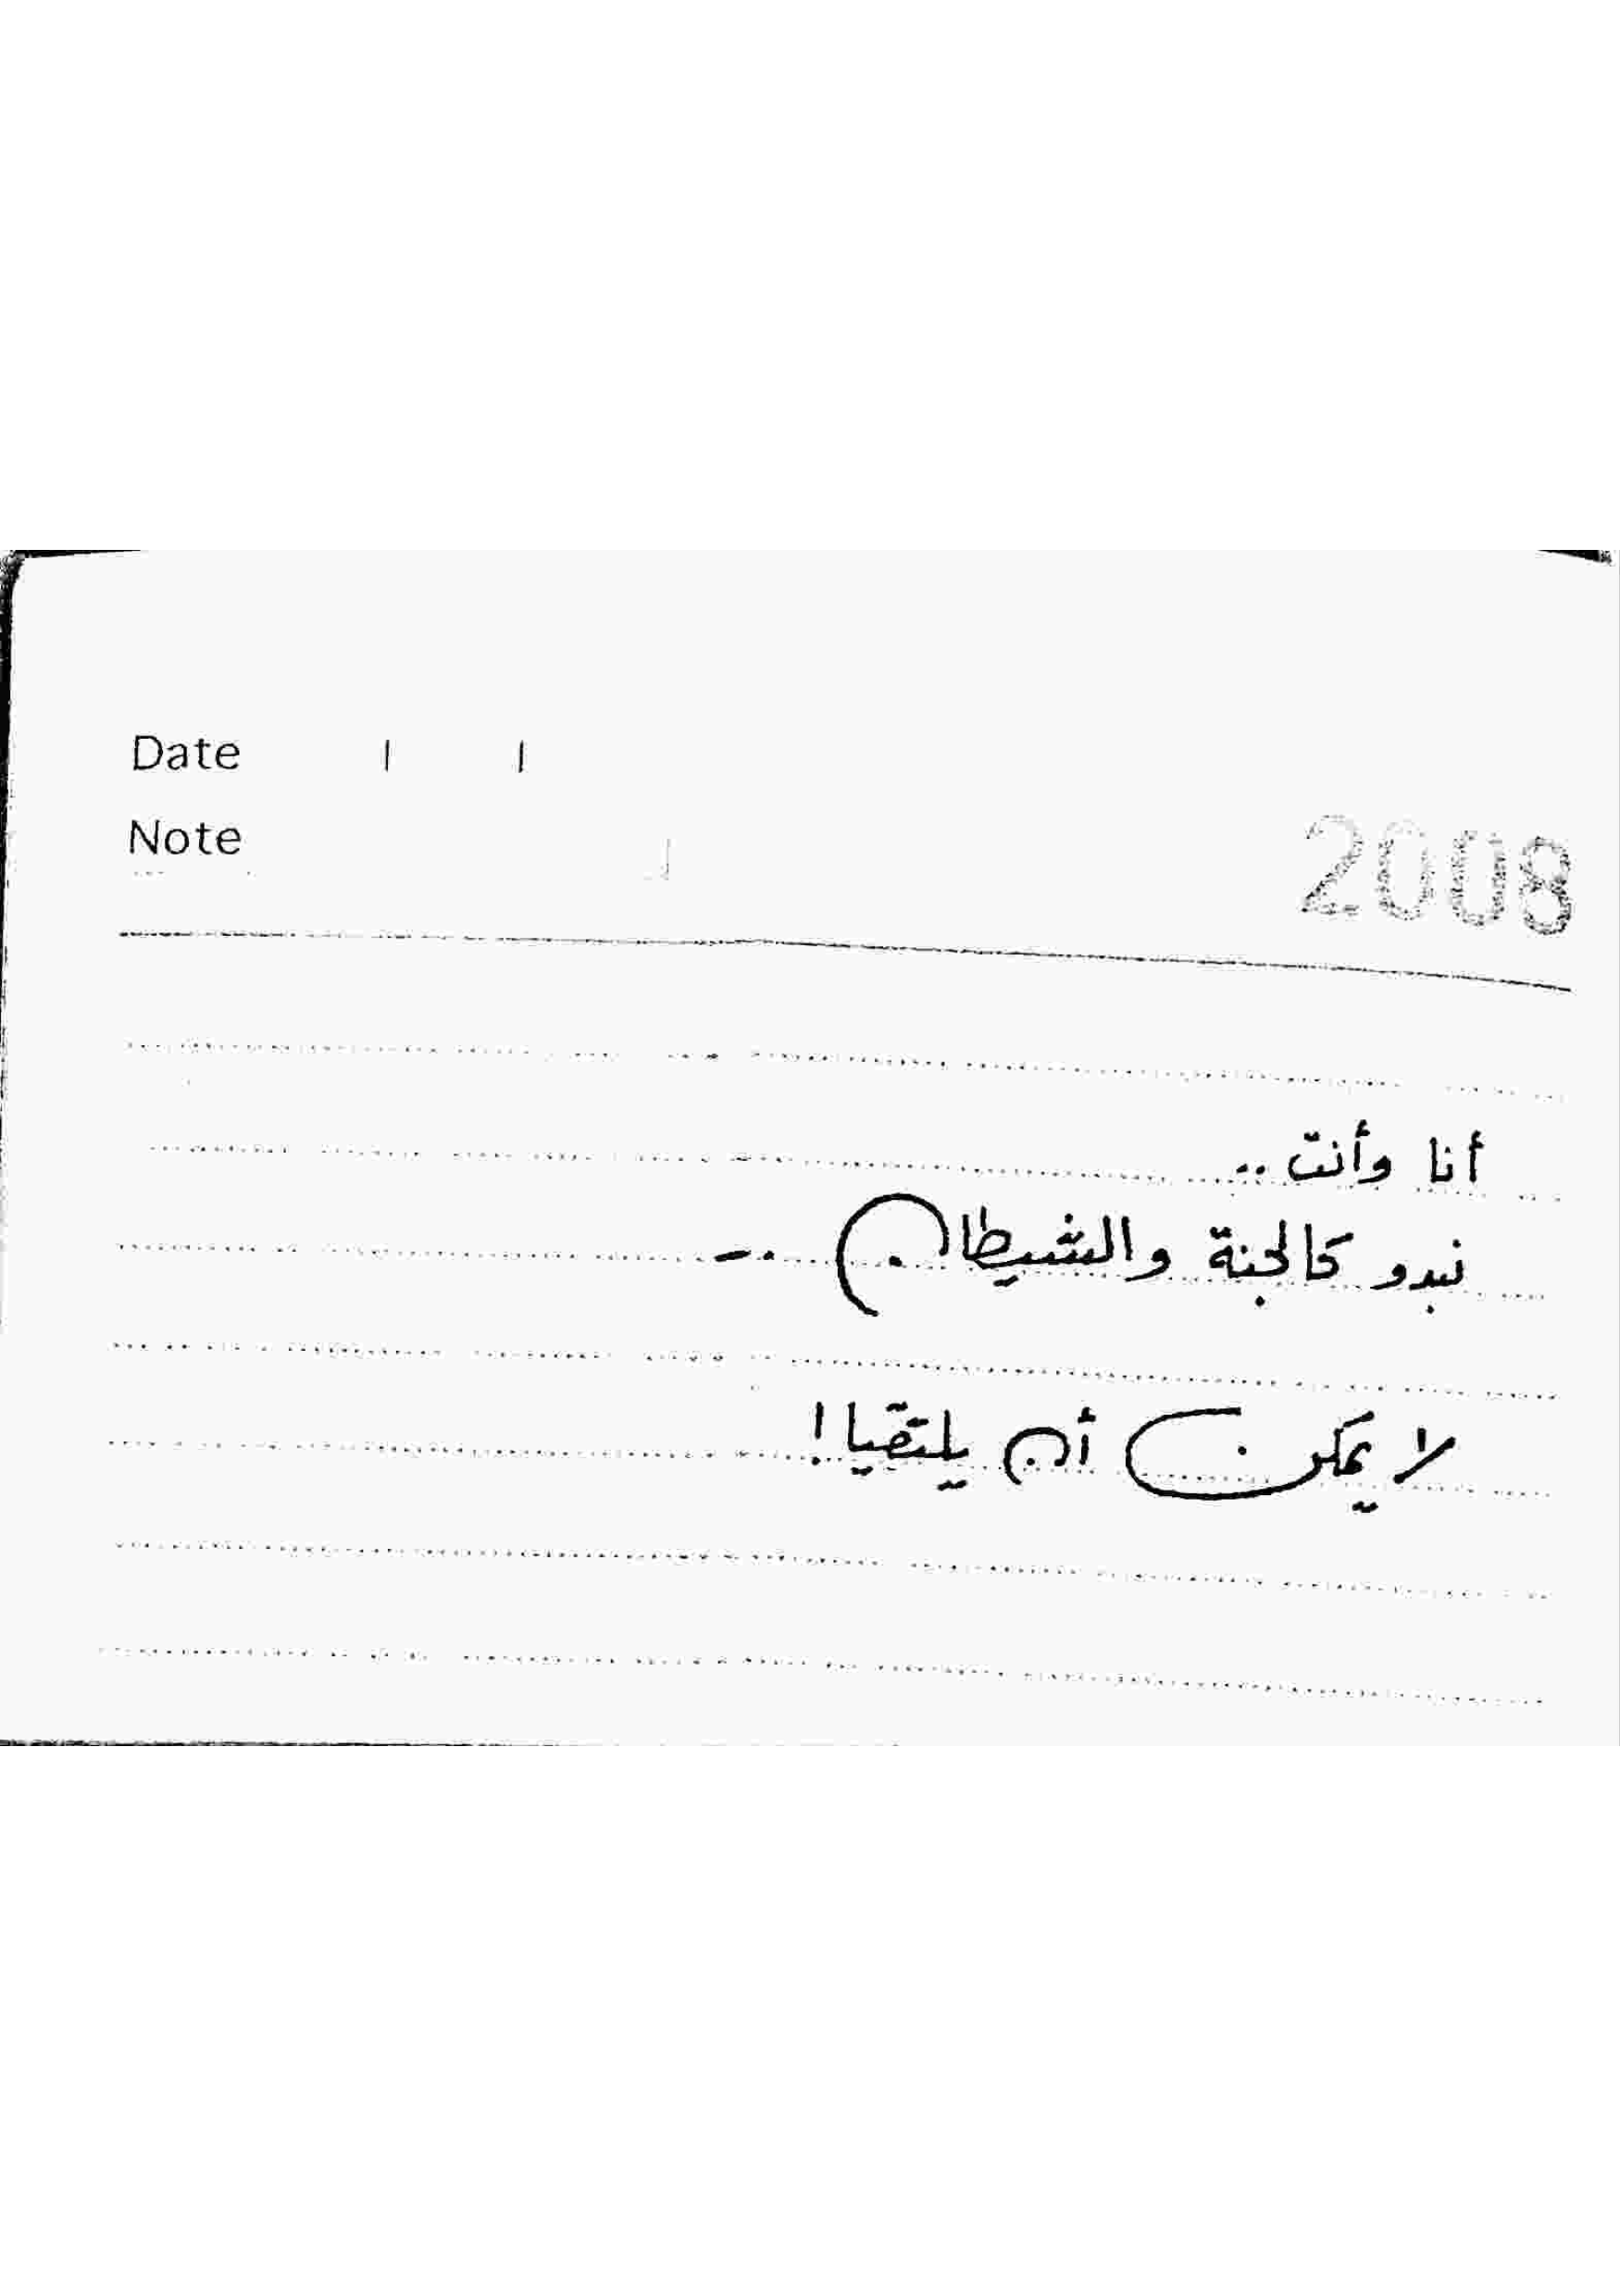 Date / /
Note
2008
أنا وأنت ..
نبدو كالجنة والشيطان ..
لا يمكن أن يلتقيا!